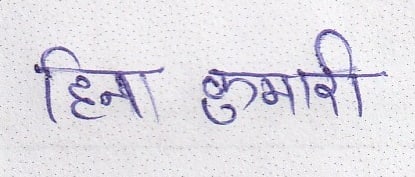 हिना कुमारी